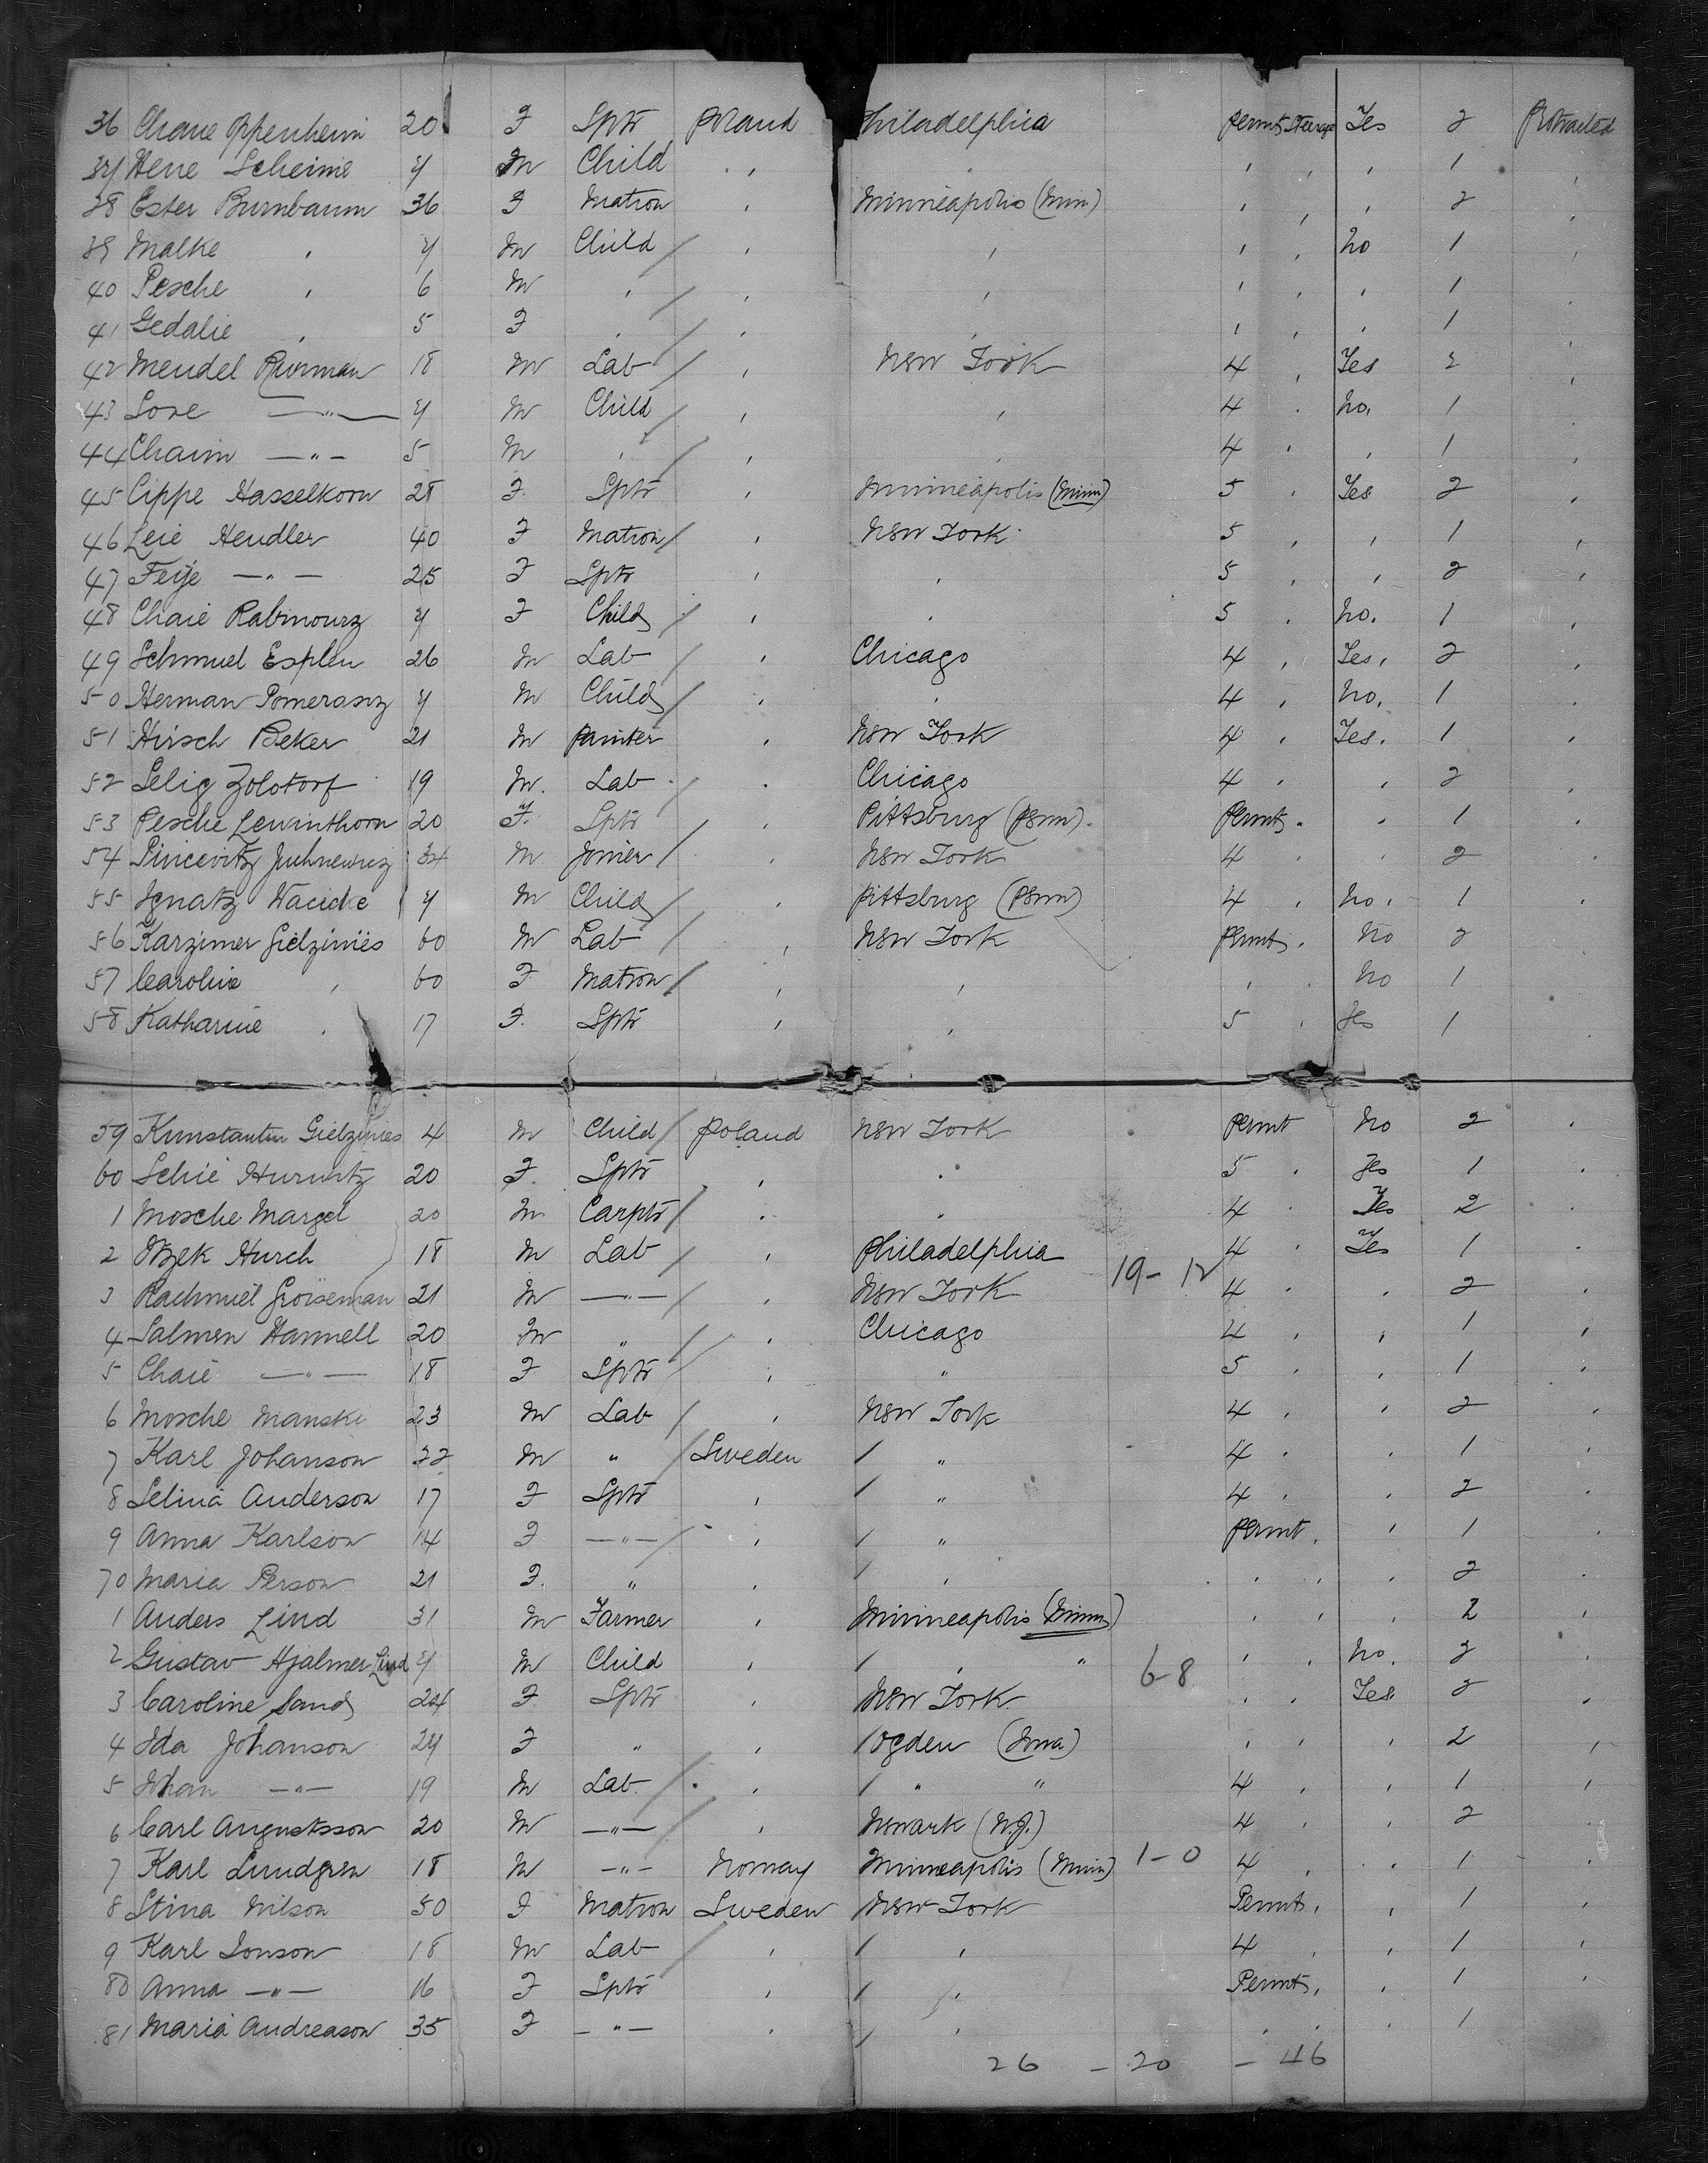 36 Chane Oppenheim 20 F Sptr Poland Philadelphia permt Steerage Yes 2 Protracted
37 Hene Scheime 4 M Child " " " " " 1 "
38 Ester Burnbaum 36 F Matron " Minneapolis (Min) " " " 2 "
39 Malke " 4 M Child / " " " " No 1 "
40 Pesche " 6 M " / " " " " " 1 "
41 Gedalie " 5 F " / " " " " " 1 "
42 Mendel 18 M Lab / " New York 4 " Yes 2 "
43 —"— 4 M Child / " " 4 " No. 1 "
44 Chaim —"— 5 M " / " " 4 " " 1 "
45 Cippe Hasselkorn 28 F. Sptr " Minneapolis (Minn) 5 " Yes 2 "
46 Leie Hendler 40 F Matron / " New York 5 " " 1 "
47 Feije —"— 25 F Sptr " " 5 " " 2 "
48 Chaie Rabinowrz 4 F Child / " " 5 " No. 1 "
49 Schmuel Esplen 26 M Lab / " Chicago 4 " Yes, 2 "
50 Herman Pomeranz 4 M Child / " " 4 " No. 1 "
51 Hirsch Beker 21 M Painter " New York 4 " Yes. 1 "
52 Selig Zolotorf 19 M. Lab / " Chicago 4 " " 2 "
53 Pesche Lewinthorn 20 F. Sptr " Pittsburg (Penn). Permt " " 1 "
54 34 M Joiner / " New York 4 " " 2 "
55 Ignatz 4 M Child / " Pittsburg (Penn) 4 " No. 1 "
56 Karzimer Gielzinies 60 M Lab / " New York Permt " No 2
57 Caroline " 60 F Matron / " " " " No 1
58 Katharine " 17 F. Sptr " " 5 " Yes 1
59 Kunstantin Gielzinies 4 M Child / Poland New York Permt No 2 "
60 Schie Hurwitz 20 F. Sptr " " 5 " Yes 1 "
1 Mosche Margel 20 M Carptr / " " 4 " Yes 2 "
2 Hurch 18 M Lab / " Philadelphia 4 " Yes 1 "
19 - 12
3 Rachmiel Groiseman 21 M —"— / " New York 4 " " 2 "
4 Salmen Hannell 20 M " / " Chicago 4 " " 1 "
5 Chaie —"— 18 F Sptr / " " 5 " " 1 "
6 Mosche Manske 23 M Lab / " New York 4 " " 2 "
7 Karl Johanson 32 M " / Sweden / " 4 " " 1 "
8 Selina Anderson 17 F Sptr " / " 4 " " 2 "
9 Anna Karlson 14 F —"— / " / " permt " " 1 "
70 Maria Person 21 F. " " / " " " " 2 "
1 Anders Lind 31 M Farmer " Minneapolis (Minn) " " " 2 "
2 Gustav Hjalmer Lind 4 M Child " / " " " " No. 2 "
6-8
3 Caroline Sand 24 F. Sptr " New York " " Yes 2 "
4 Ida Johanson 24 F " " / Ogden (Iowa) " " " 2 "
5 Johan —"— 19 M Lab / " / " " 4 " " 1 "
6 Carl Augustsson 20 M —"— / " Newark (N.J.) 4 " " 2 "
7 Karl Lundgren 18 M —"— Norway Minneapolis (Minn) 1-0 4 " " 1 "
8 Stina Nilson 50 F Matron Sweden New York Permt " " 1 "
9 Karl Jonson 18 M Lab / " / " 4 " " 1 "
80 Anna —"— 16 F Sptr " / " Permt " " 1 "
81 Maria Andreason 35 F —"— " / " " " " 1
26 - 20 - 46